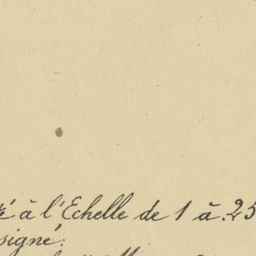 é à l'Echelle de 1 à 25
signé: